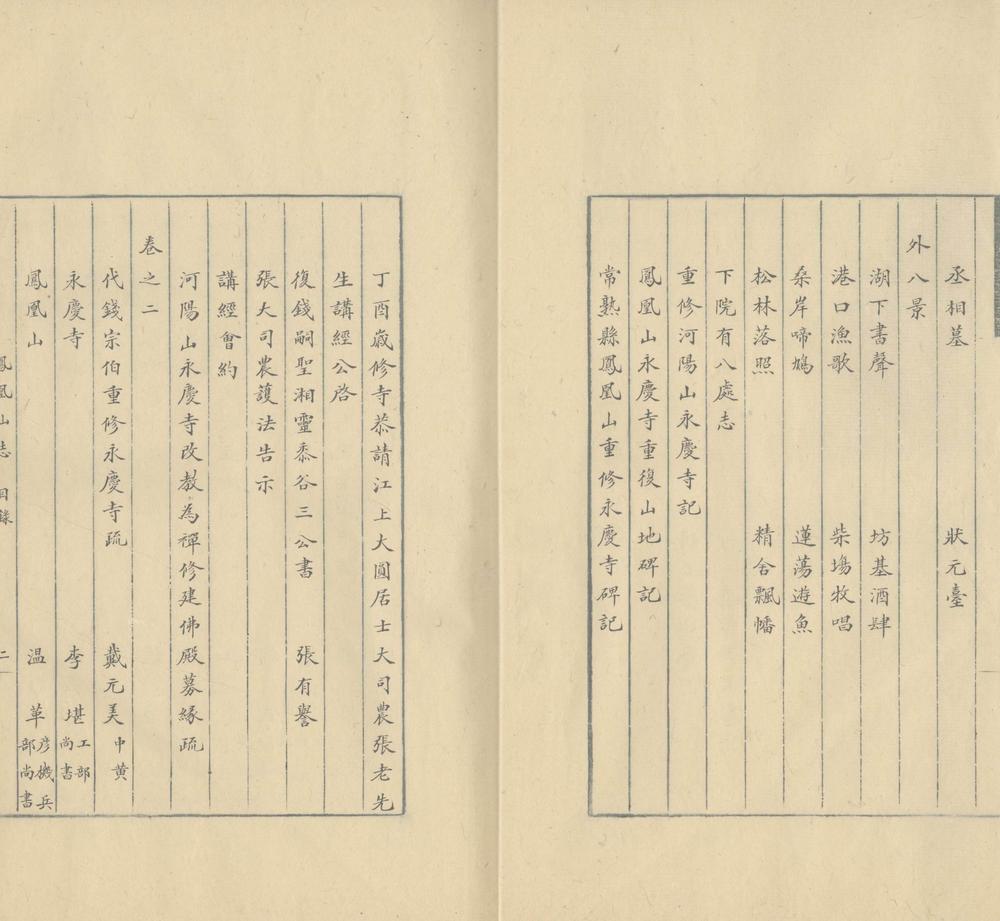 丞相墓 狀元臺
外八景
湖下書聲 坊基酒肆
港口漁歌 柴場牧唱
桑岸啼鳩 蓮蕩遊魚
松林落照 精舍飄幡
下院有八處志
重修河陽山永慶寺記
鳳凰山永慶寺重復山地碑記
常熟縣鳳凰山重修永慶寺碑記
丁酉歲修寺恭請江上大圓居士大司農張老先
生講經公啓
復錢嗣聖湘靈黍谷三公書 張有譽
張大司農護法告示
講經會約
河陽山永慶寺改教為禪修建佛殿募緣疏
卷之二
代錢宗伯重修永慶寺疏 戴元美中黄
永慶寺 李堪工部尚書
鳳凰山 温革彥機兵部尚書
鳳凰山志 目錄 二